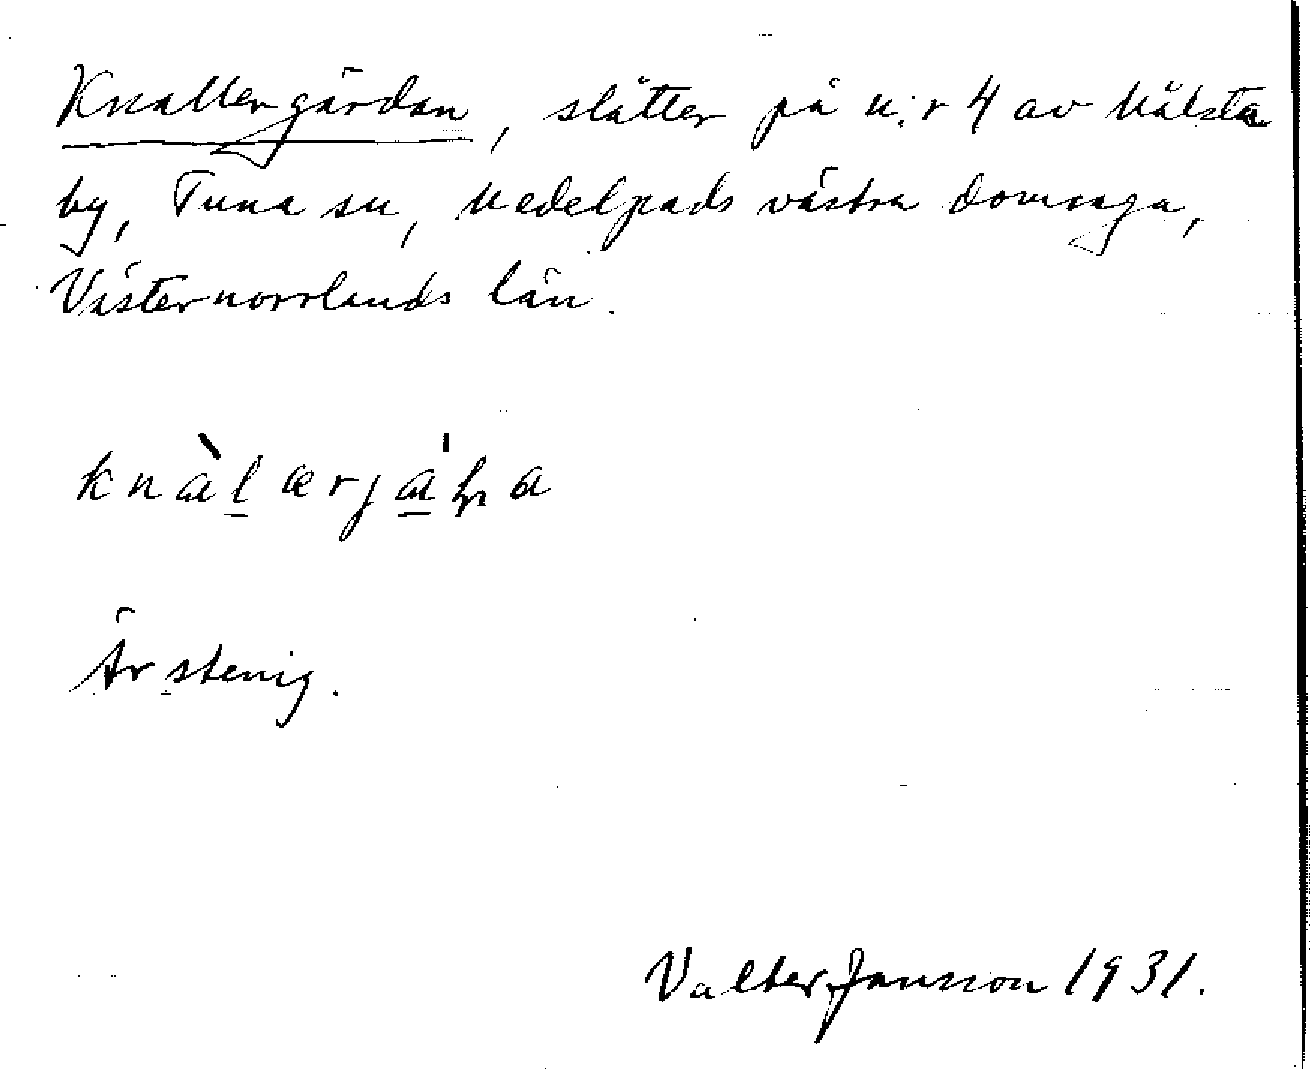 Knallergärdan, slåtter på n:r 4 av Målsta
by, Tuna sn, Medelpads västra domsaga,
Västernorrlands län.
Är stenig.
Valter Jansson 1931.